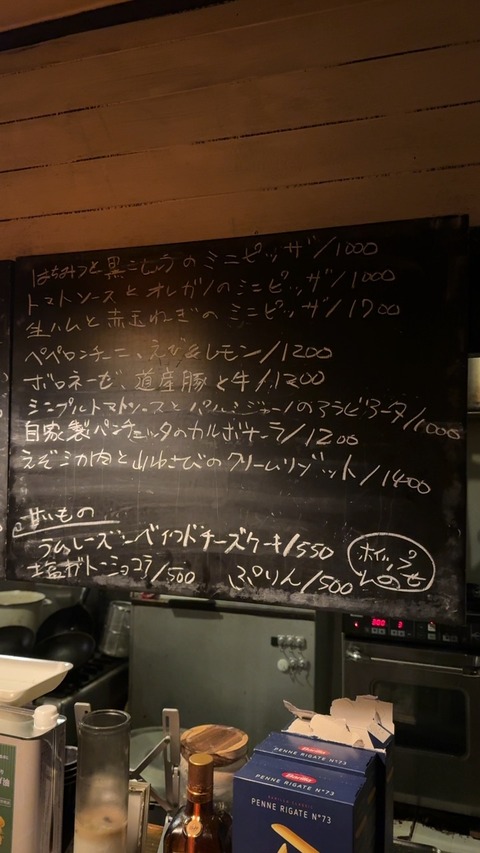 はちみつと黒こしょうのミニピッザ/1000
トマトソースとオレガノのミニピッザ/1000
生ハムと赤玉ねぎのミニピッザ/1700
ペペロンチーニ、えび&レモン/1200
ボロネーゼ、道産豚と牛/1300
シンプルトマトソースとパルミジャーノのアラビアータ/1000
自家製パンチェッタのカルボナーラ/1200
えぞシカ肉と山わさびのクリームリゾット/1400
甘いもの
ラムレーズンベイクドチーズケーキ/550
塩ガトーショコラ/500 ぷりん/500
ホイップ
のせ
Barilla
PENNE RIGATE N°73
Barilla
PENNE RIGATE N°73